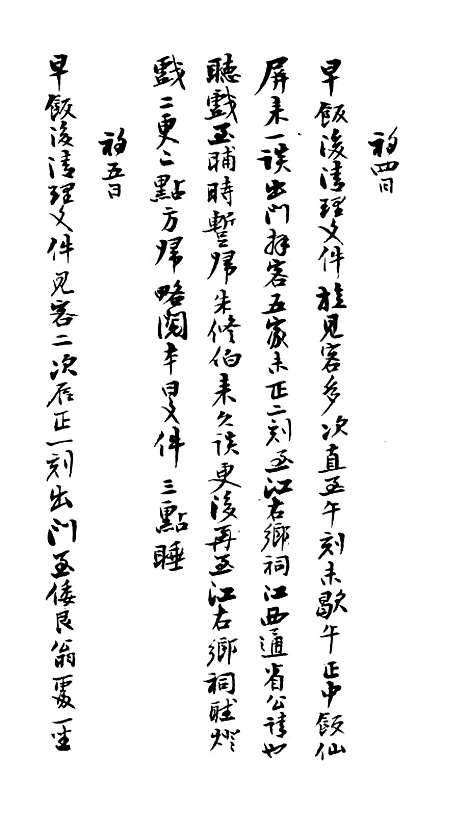 初四日
早飯後清理文件旋見客多次直至午刻未歇午正中飯仙
屏來一談出門拜客五家未正二刻至江右鄉祠江西通省公請也
聽戲至晡時暫歸朱修伯來久談更後再至江右鄉祠聽燈
戲二更二點方歸略閱本日文件三點睡
初五日
早飯後清理文件見客二次辰正一刻出門至倭艮翁處一坐